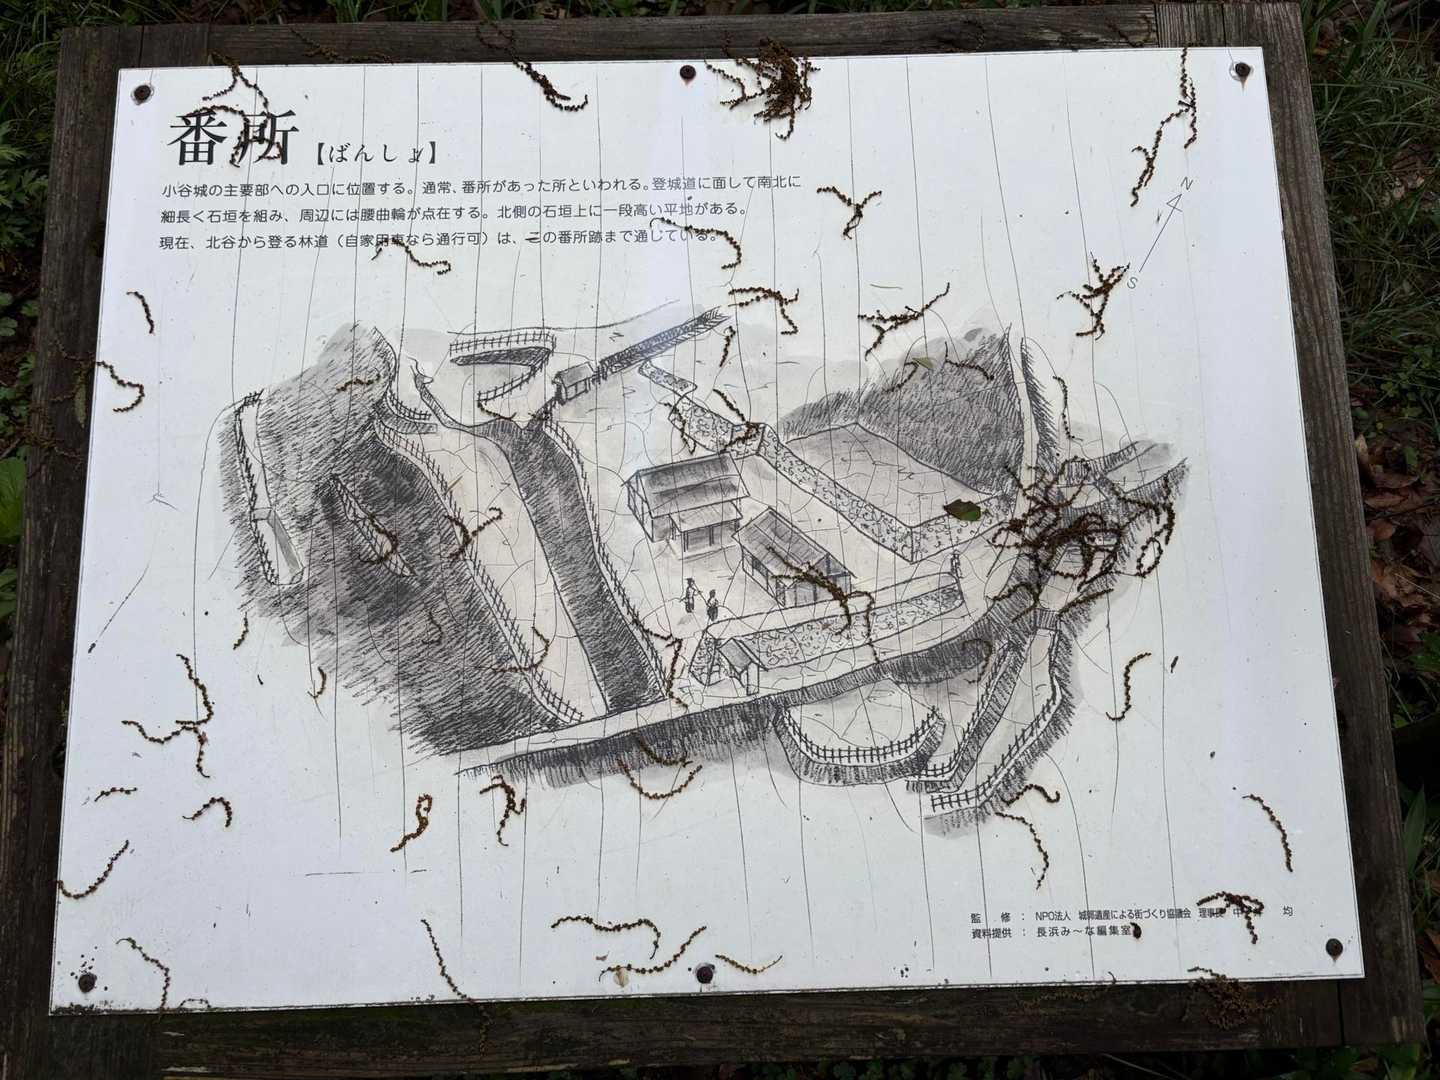 番所【ばんしょ】
小谷城の主要部への入口に位置する。通常、番所があった所といわれる。登城道に面して南北に
細長く石垣を組み、周辺には腰曲輪が点在する。北側の石垣上に一段高い平地がある。
現在、北谷から登る林道（自家用車なら通行可）は、この番所跡まで通じている。
N
S
監　修　：　NPO法人　城郭遺産による街づくり協議会　理事長　中　均
資料提供　：　長浜み～な編集室